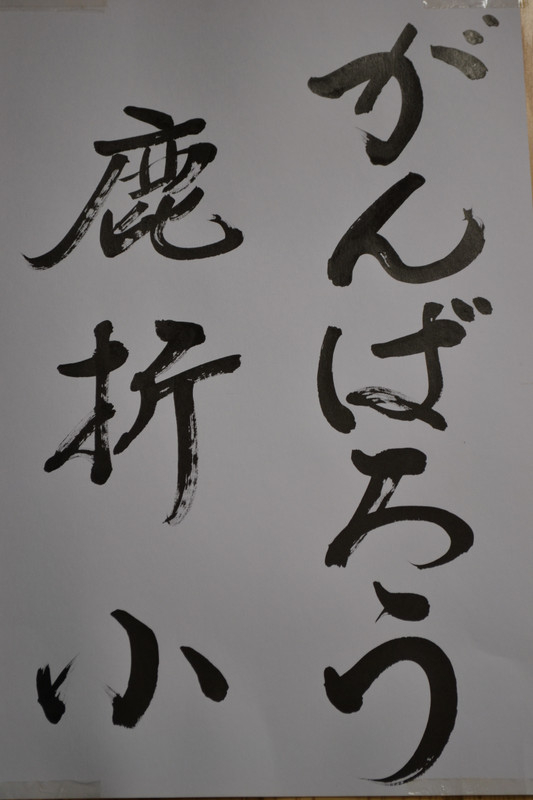 がんばろう
鹿折小